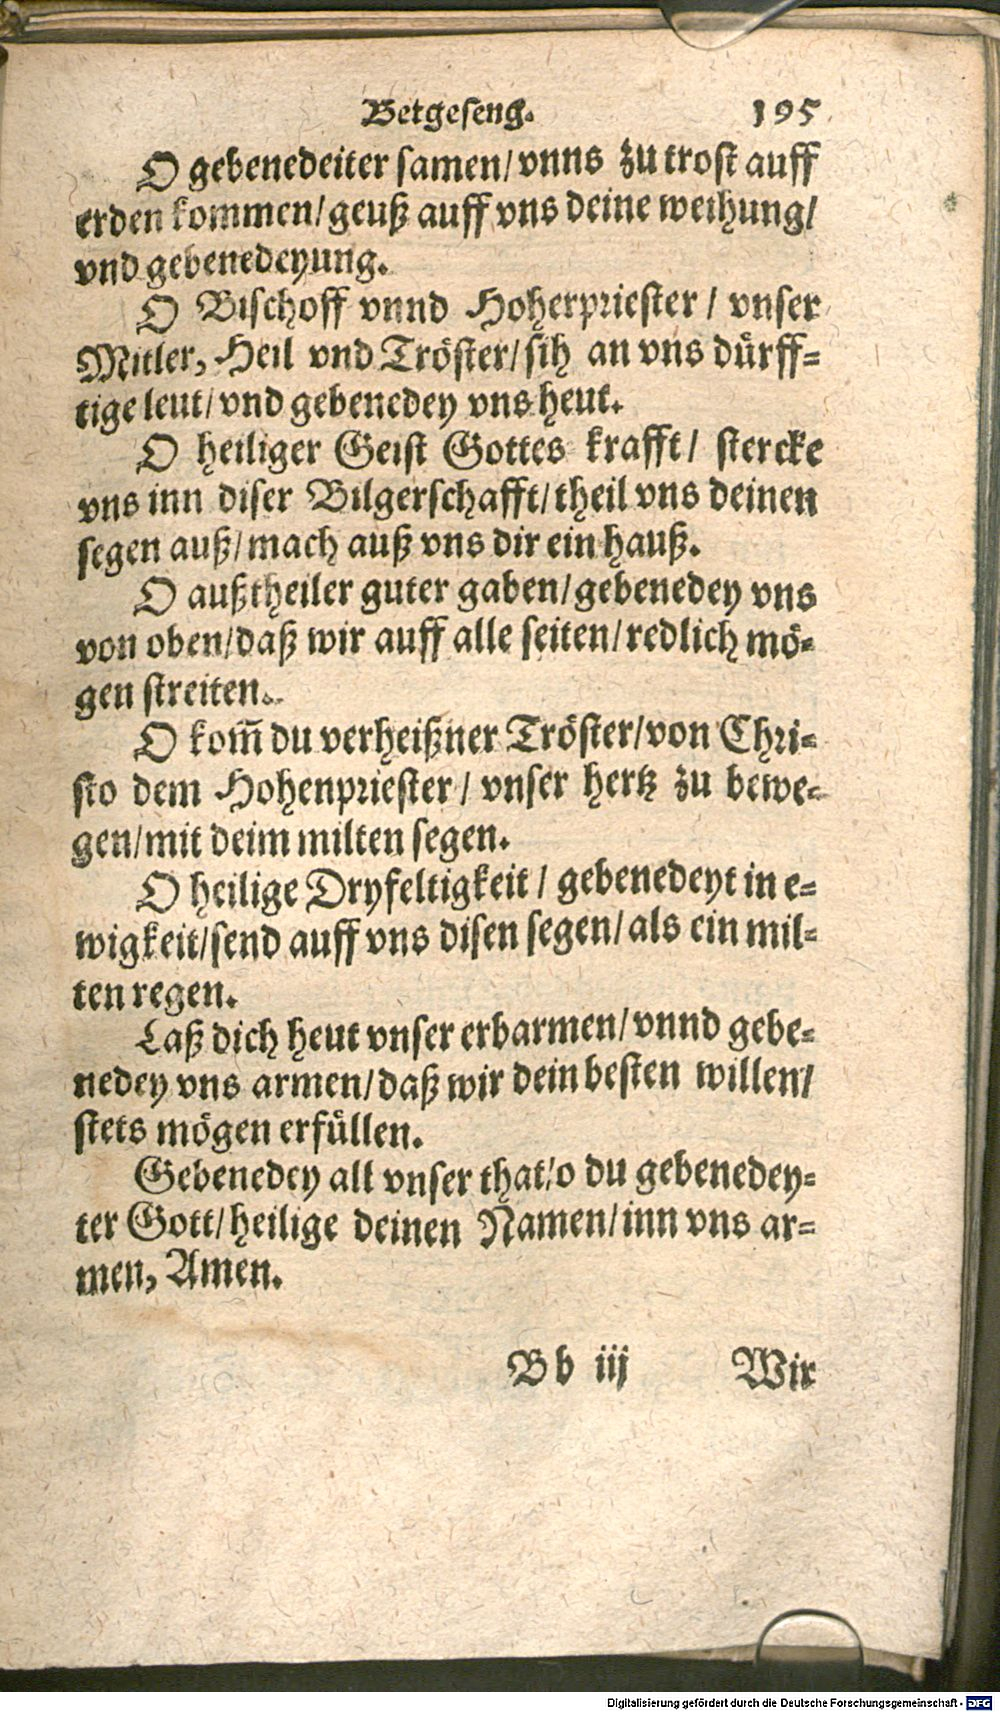 Betgeseng. 195
O gebenedeiter samen/ vnns zu trost auff
erden kommen/ geuß auff vns deine weihung/
vnd gebenedeyung.
O Bischoff vnnd Hoherpriester / vnser
Mitler, Heil vnd Tröster/ sih an vns dürff-
tige leut/ vnd gebenedey vns heut.
O heiliger Geist Gottes krafft/ stercke
vns inn diser Bilgerschafft/ theil vns deinen
segen auß/ mach auß vns dir ein hauß.
O außtheiler guter gaben/ gebenedey vns
von oben/ daß wir auff alle seiten/ redlich mö-
gen streiten.
O kom̃ du verheißner Tröster/ von Chri-
sto dem Hohenpriester / vnser hertz zu bewe-
gen/ mit deim milten segen.
O heilige Dryfeltigkeit / gebenedeyt in e-
wigkeit/ send auff vns disen segen/ als ein mil-
ten regen.
Laß dich heut vnser erbarmen/ vnnd gebe-
nedey vns armen/ daß wir dein besten willen/
stets mögen erfüllen.
Gebenedey all vnser that/ o du gebenedey-
ter Gott/ heilige deinen Namen/ inn vns ar-
men, Amen.
B b iij Wir
Digitalisierung gefördert durch die Deutsche Forschungsgemeinschaft - DFG